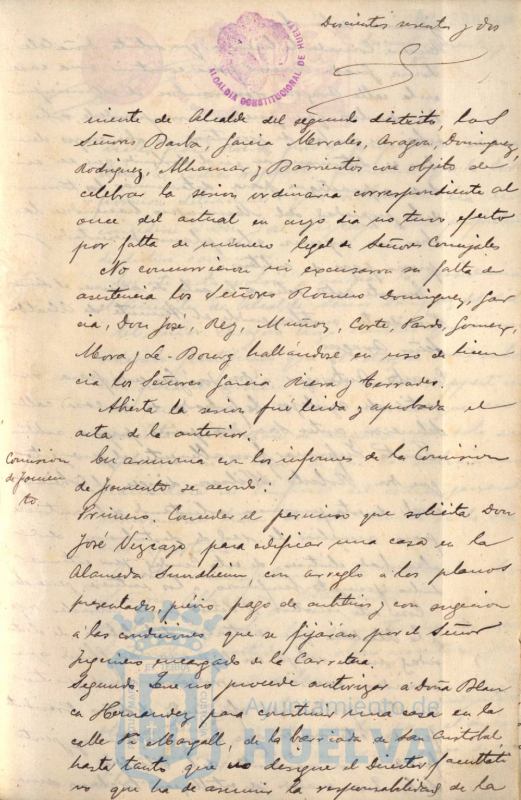 Doscientos sesenta y dos
ALCALDIA CONSTITUCIONAL DE HUELVA
niente de Alcalde del segundo distrito, los
Señores Barba, Garcia Morales, Aragon, Dominguez,
Rodriguez, Alhamar y Barrientos con objeto de
celebrar la sesion ordinaria correspondiente al
once del actual en cuyo dia no tuvo efecto
por falta de número legal de Señores Concejales
No concurrieron ni excusaron su falta de
asistencia los Señores Romero Dominguez, Gar
cia, Don José, Rey, Muñoz, Corte, Pardo, Gomez,
Mora y Le-Bourg hallándose en uso de licen
cia los Señores Garcia Riera y Terrades.
Abierta la sesion fué leida y aprobada el
acta de la anterior.
Comision
de Fomen
to.
En armonia con los informes de la Comision
de Fomento se acordó:
Primero. Conceder el permiso que solicita Don
José Vizcayo para edificar una casa en la
Alameda Sundheim, con arreglo á los planos
presentados, previo pago de arbitrios y con sugecion
á las condiciones que se fijarán por el Señor
Ingeniero encargado de la Carretera.
Segundo. Que no procede autorizar á Doña Blan
ca Hernandez para construir una casa en la
calle Pi Margall, de la barriada de San Cristobal
hasta tanto que no designe el Director facultati
vo que ha de asumir la responsabilidad de la
Ayuntamiento de
HUELVA